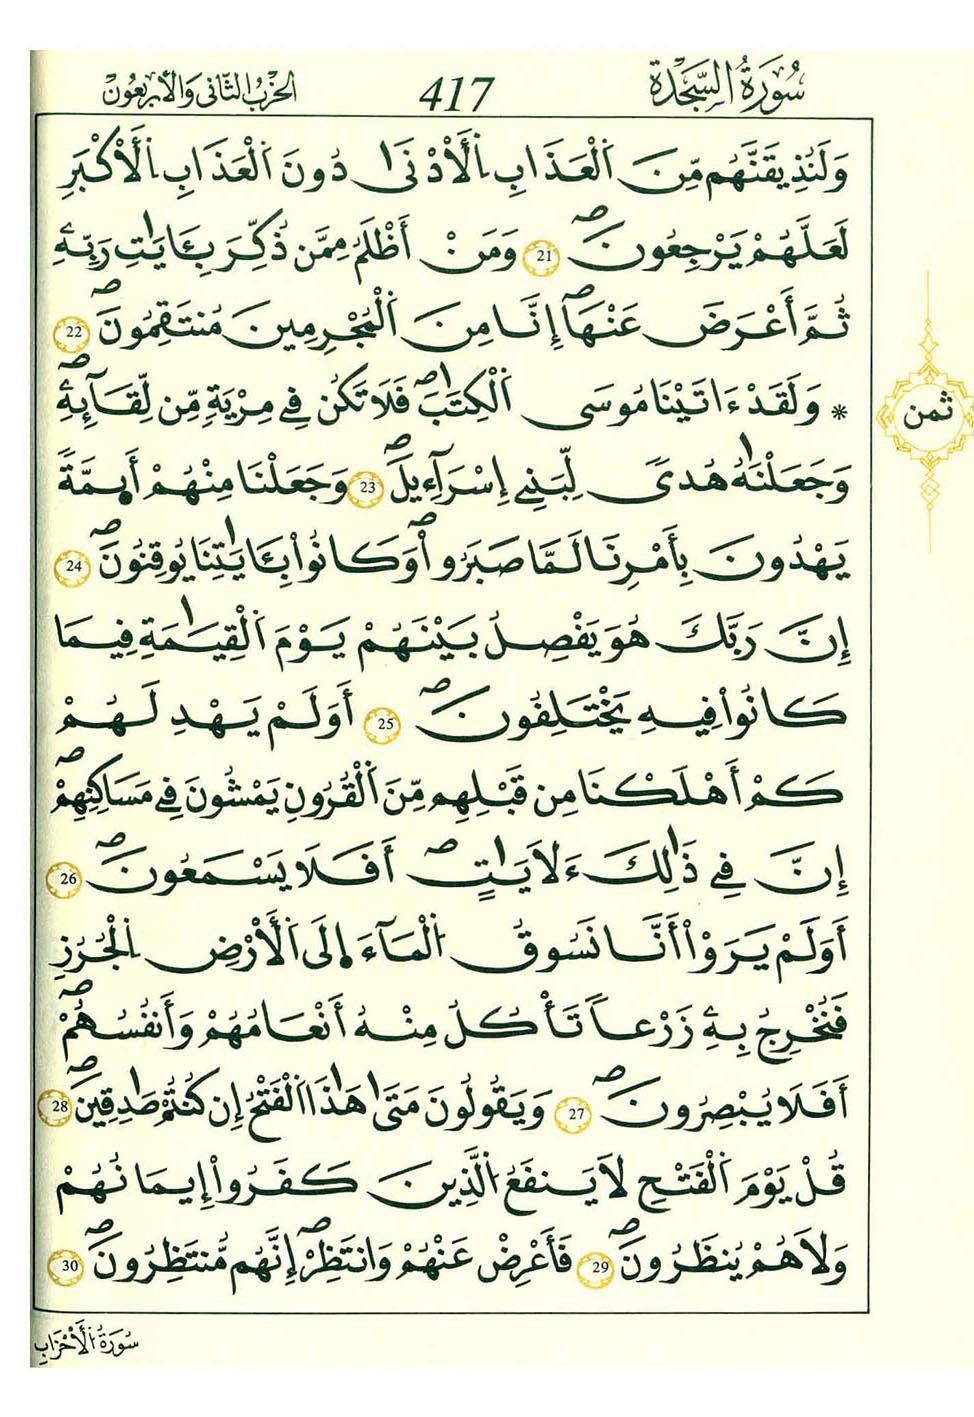 سُورَةُ السَّجْدَةِ 417 الحِزْبُ الثَّانِي وَالأَرْبَعُونَ
وَلَنُذِيقَنَّهُم مِّنَ اَ۬لْعَذَابِ اِ۬لَادْن۪يٰ دُونَ اَ۬لْعَذَابِ اِ۬لَاكْبَرِ
لَعَلَّهُمْ يَرْجِعُونَۖ 21 وَمَنَ اَظْلَمُ مِمَّن ذُكِّرَ بِـَٔايَٰتِ رَبِّهِۦ
ثُمَّ أَعْرَضَ عَنْهَآۖ إِنَّا مِنَ اَ۬لْمُجْرِمِينَ مُنتَقِمُونَۖ 22
* وَلَقَدَ اٰتَيْنَا مُوسَي اَ۬لْكِتَٰبَۖ فَلَا تَكُن فِے مِرْيَةٖ مِّن لِّقَآئِهِۦ
وَجَعَلْنَٰهُ هُديٗ لِّبَنِےٓ إِسْرَآءِيلَۖ 23 وَجَعَلْنَا مِنْهُمُۥٓ أَئِمَّةٗ
يَهْدُونَ بِأَمْرِنَا لَمَّا صَبَرُواْۖ وَكَانُواْ بِـَٔايَٰتِنَا يُوقِنُونَۖ 24
إِنَّ رَبَّكَ هُوَ يَفْصِلُ بَيْنَهُمْ يَوْمَ اَ۬لْقِيَٰمَةِ فِيمَا
كَانُواْ فِيهِ يَخْتَلِفُونَۖ 25 أَوَلَمْ يَهْدِ لَهُمْ
كَمَ اَهْلَكْنَا مِن قَبْلِهِم مِّنَ اَ۬لْقُرُونِ يَمْشُونَ فِے مَسَاكِنِهِمُۥٓۖ
إِنَّ فِے ذَٰلِكَ ءَلَايَٰتٍۖ اَفَلَا يَسْمَعُونَۖ 26
أَوَلَمْ يَرَوَاْ اَنَّا نَسُوقُ اُ۬لْمَآءَ اِلَي اَ۬لَارْضِ اِ۬لْجُرُزِ
فَنُخْرِجُ بِهِۦ زَرْعاٗ تَأْكُلُ مِنْهُ أَنْعَامُهُمْ وَأَنفُسُهُمُۥٓۖ
أَفَلَا يُبْصِرُونَۖ 27 وَيَقُولُونَ مَتَيٰ هَٰذَا اَ۬لْفَتْحُ إِن كُنتُمْ صَٰدِقِينَۖ 28
قُلْ يَوْمَ اَ۬لْفَتْحِ لَا يَنفَعُ اُ۬لذِينَ كَفَرُوٓاْ إِيمَانُهُمْ
وَلَا هُمْ يُنظَرُونَۖ 29 فَأَعْرِضْ عَنْهُمْ وَانتَظِرِۖ اِنَّهُم مُّنتَظِرُونَۖ 30
ثمن
سُورَةُ الْأَحْزَابِ